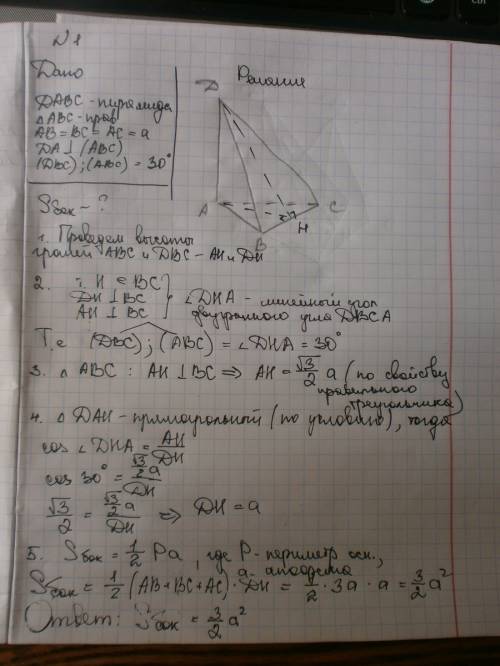 N 1
Дано
DABC - пирамида
△ABC - прав
AB = BC = AC = a
DA ⊥ (ABC)
(DBC) ; (ABC) = 30°
Sбок - ?
Решение
D
A
B
C
H
1. Проведем высоты
граней ABC и DBC - AH и DH
2. т. H ∈ BC
DH ⊥ BC
AH ⊥ BC
∠DHA - линейный угол
двугранного угла DBCA
Т.е (DBC) ; (ABC) = ∠DHA = 30°
3. △ ABC : AH ⊥ BC ⇒ AH = √3/2 a (по свойству
правильного
треугольника)
4. △ DAH - прямоугольный (по условию), тогда
cos ∠DHA = AH/DH
cos 30° = (√3/2 a)/DH
√3/2 = (√3/2 a)/DH ⇒ DH = a
5. Sбок = 1/2 Pa, где P - периметр осн.,
a - апофема
Sбок = 1/2 (AB + BC + AC) · DH = 1/2 · 3a · a = 3/2 a²
Ответ: Sбок = 3/2 a²